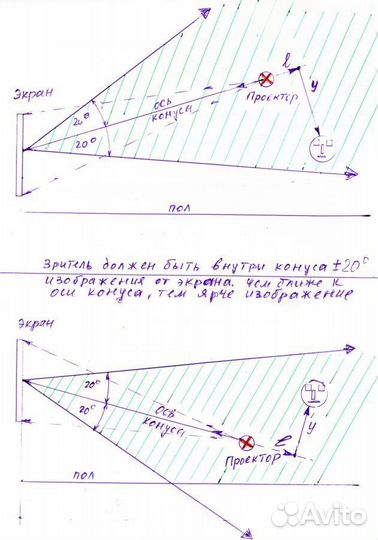 Экран
20°
20°
ось
конуса
Проектор
l
y
пол
Зритель должен быть внутри конуса ±20°
изображения от экрана. Чем ближе к
оси конуса, тем ярче изображение
Экран
20°
20°
Ось
конуса
Проектор
l
y
пол
Avito